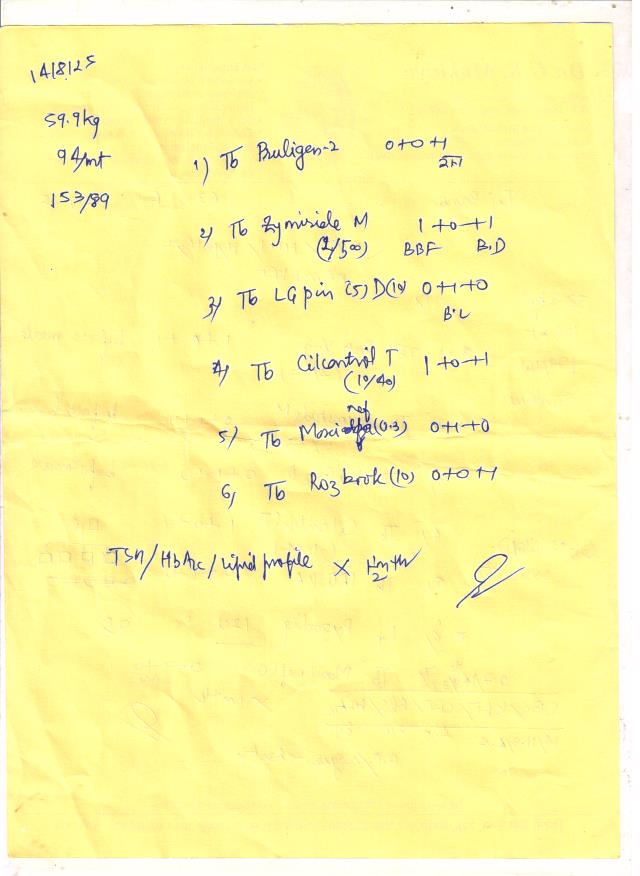 14/8/25
59.9kg
94/mt
153/89
1) Tb Buligen-2 0+0+1
2) Tb Zymiside M 1+0+1
(2/500) BBF B.D
3) Tb LGpin (5) D(10) 0+1+0
B.L
4) Tb Cilcontrol T 1+0+1
(10/40)
5) Tb Moxi (0.3) 0+1+0
6) Tb Rozbrok (10) 0+0+1
TSH/HbA1c/Lipid profile X